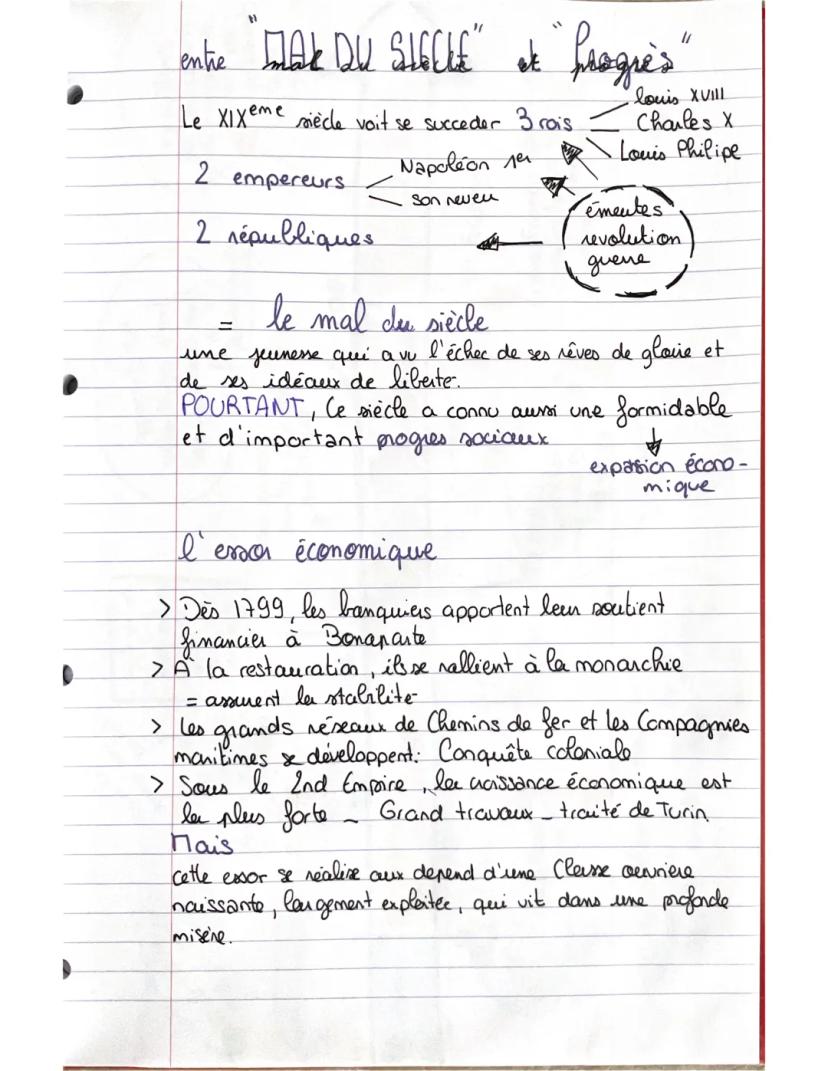 entre "MAL DU SIECLE" et "Progrès"
Le XIXeme siècle voit se succeder 3 rois
louis XVIII
Charles X
Louis Philipe
2 empereurs
Napoléon 1er
son neveu
2 républiques
émeutes
revolution
guerre
= le mal du siècle
une jeunesse qui a vu l'échec de ses rêves de gloire et
de ses idéaux de liberte.
POURTANT, Ce siècle a connu aussi une formidable
et d'important progres sociaux
expasion écono-
mique
l'essor économique
> Dès 1799, les banquiers apportent leur soutient
financier à Bonaparte
> A la restauration, ils se rallient à la monarchie
= assurent la stabilite
> Les grands réseaux de Chemins de fer et les Compagnies
maritimes se développent: Conquête coloniale
> Sous le 2nd Empire, la croissance économique est
la plus forte - Grand travaux - traité de Turin
Mais
cette essor se réalise aux depend d'une Classe oeuvriere
naissante, largement exploitée, qui vit dans une profonde
misère.